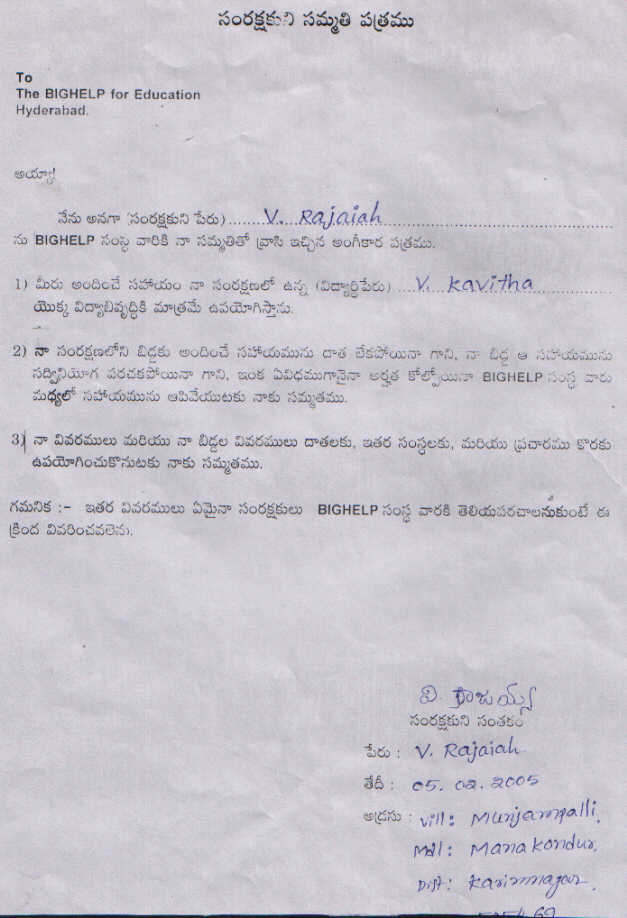 సంరక్షకుని సమ్మతి పత్రము
To
The BIGHELP for Education
Hyderabad.
అయ్యా!
నేను అనగా (సంరక్షకుని పేరు)...... V. Rajaiah
ను BIGHELP సంస్థ వారికి నా సమ్మతితో వ్రాసి ఇచ్చిన అంగీకార పత్రము.
1) మీరు అందించే సహాయం నా సంరక్షణలో ఉన్న (విద్యార్థిపేరు).... V. Kavitha
యొక్క విద్యాభివృద్ధికి మాత్రమే ఉపయోగిస్తాను.
2) నా సంరక్షణలోని బిడ్డకు అందించే సహాయమును దాత లేకపోయినా గాని, నా బిడ్డ ఆ సహాయమును
సద్వినియోగ పరచకపోయినా గాని, ఇంక ఏవిధముగానైనా అర్హత కోల్పోయినా BIGHELP సంస్థ వారు
మధ్యలో సహాయమును ఆపివేయుటకు నాకు సమ్మతము.
3) నా వివరములు మరియు నా బిడ్డల వివరములు దాతలకు, ఇతర సంస్థలకు, మరియు ప్రచారము కొరకు
ఉపయోగించుకొనుటకు నాకు సమ్మతము.
గమనిక :- ఇతర వివరములు ఏమైనా సంరక్షకులు BIGHELP సంస్థ వారకి తెలియపరచాలనుకుంటే ఈ
క్రింద వివరించవలెను.
వి. రాజయ్య
సంరక్షకుని సంతకం
పేరు : V. Rajaiah
తేదీ : 05. 02. 2005
అడ్రసు : vill: Munjampalli,
Mdl: Manakondur,
Dist: Karimnagar